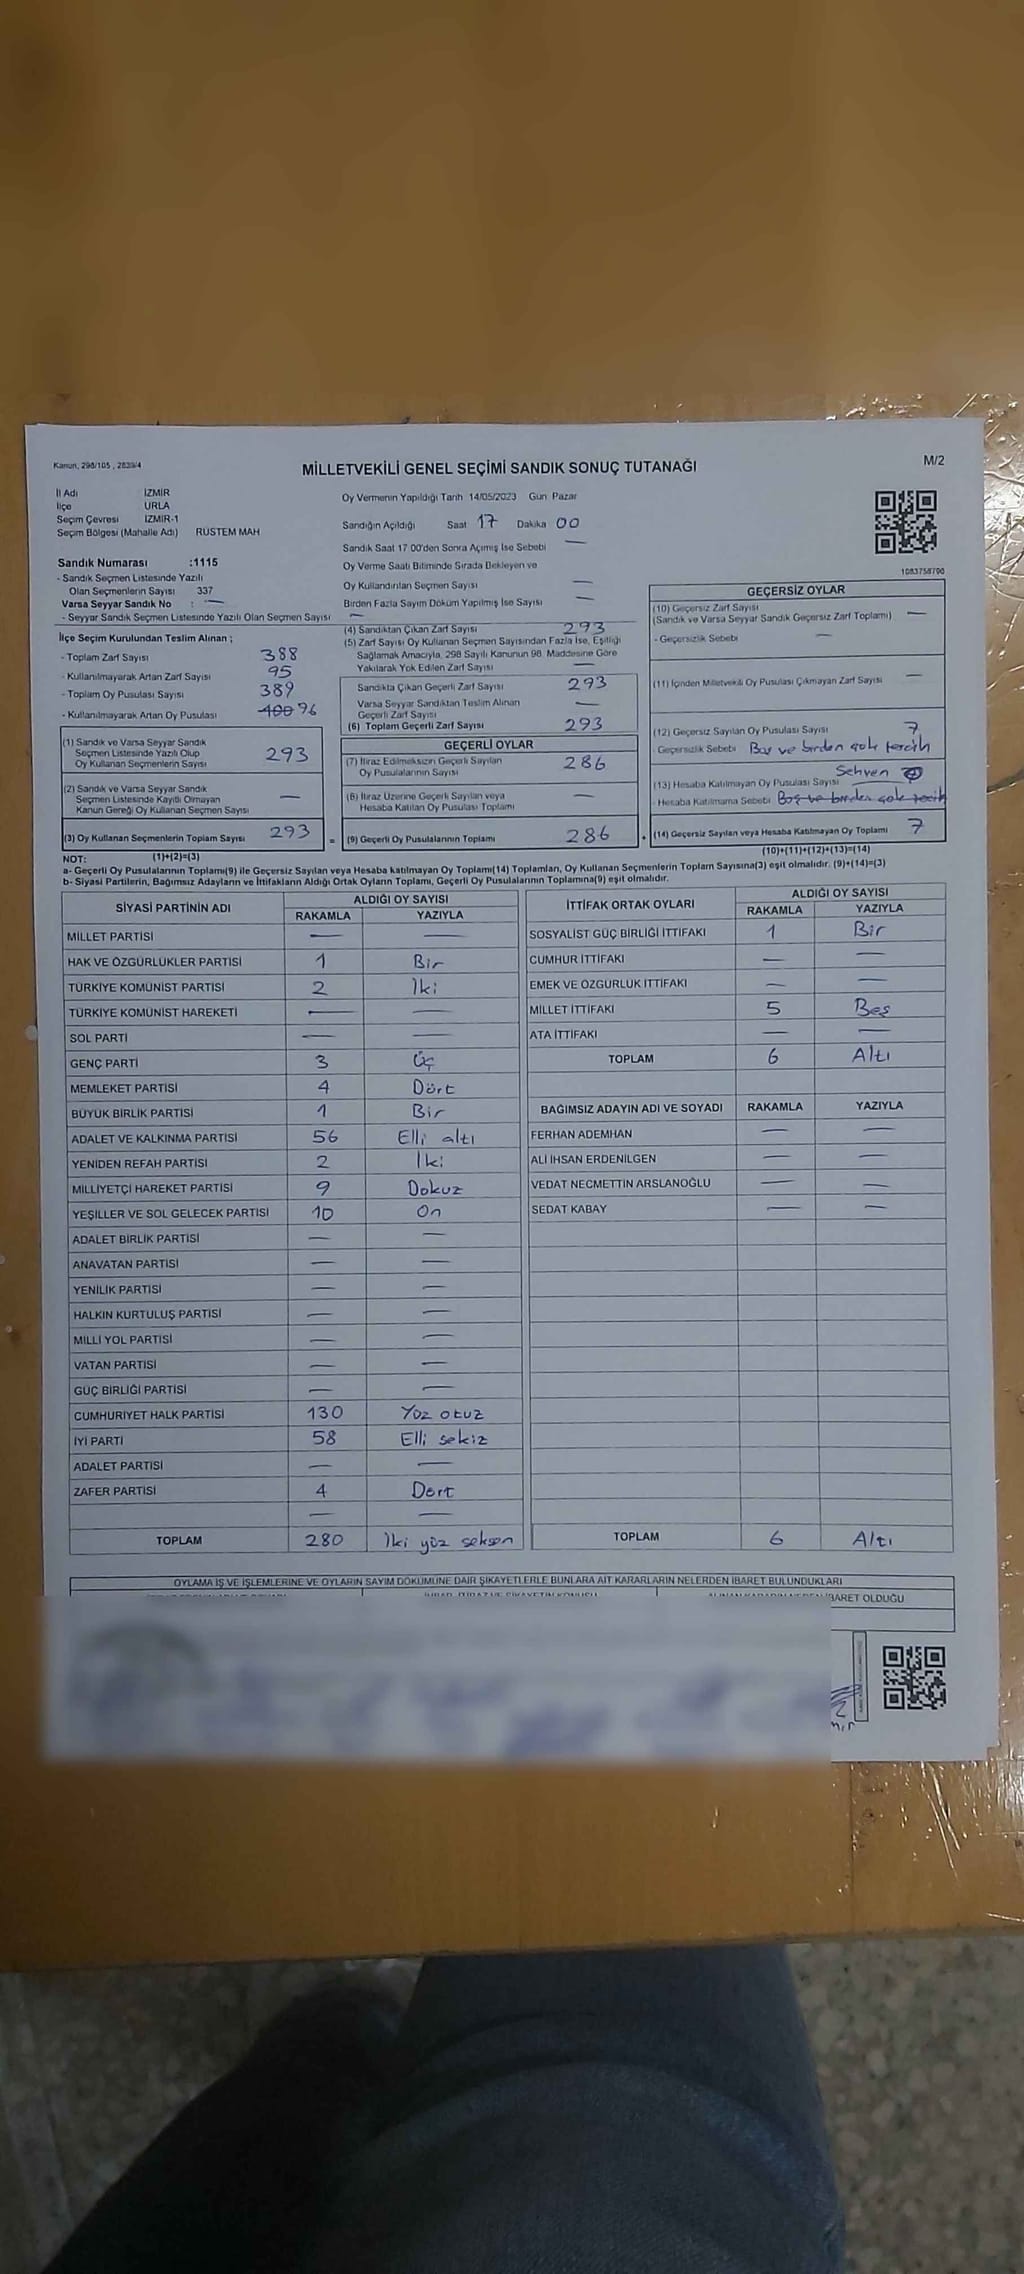 Kanun, 298/105 , 2839/4
MİLLETVEKİLİ GENEL SEÇİMİ SANDIK SONUÇ TUTANAĞI
M/2
İl Adı İZMİR
İlçe URLA
Seçim Çevresi İZMİR-1
Seçim Bölgesi (Mahalle Adı) RÜSTEM MAH
Sandık Numarası :1115
- Sandık Seçmen Listesinde Yazılı
Olan Seçmenlerin Sayısı 337
Varsa Seyyar Sandık No : —
- Seyyar Sandık Seçmen Listesinde Yazılı Olan Seçmen Sayısı —
İlçe Seçim Kurulundan Teslim Alınan ;
- Toplam Zarf Sayısı 388
- Kullanılmayarak Artan Zarf Sayısı 95
- Toplam Oy Pusulası Sayısı 389
- Kullanılmayarak Artan Oy Pusulası 400 96
(1) Sandık ve Varsa Seyyar Sandık
Seçmen Listesinde Yazılı Olup
Oy Kullanan Seçmenlerin Sayısı 293
(2) Sandık ve Varsa Seyyar Sandık
Seçmen Listesinde Kayıtlı Olmayan
Kanun Gereği Oy Kullanan Seçmen Sayısı —
(3) Oy Kullanan Seçmenlerin Toplam Sayısı 293
Oy Vermenin Yapıldığı Tarih 14/05/2023 Gün Pazar
Sandığın Açıldığı Saat 17 Dakika 00
Sandık Saat 17 00'den Sonra Açımış İse Sebebi —
Oy Verme Saati Bitiminde Sırada Bekleyen ve
Oy Kullandırılan Seçmen Sayısı —
Birden Fazla Sayım Döküm Yapılmış İse Sayısı —
(4) Sandıktan Çıkan Zarf Sayısı 293
(5) Zarf Sayısı Oy Kullanan Seçmen Sayısından Fazla İse, Eşitliği
Sağlamak Amacıyla, 298 Sayılı Kanunun 98. Maddesine Göre
Yakılarak Yok Edilen Zarf Sayısı —
Sandıkta Çıkan Geçerli Zarf Sayısı 293
Varsa Seyyar Sandıktan Teslim Alınan
Geçerli Zarf Sayısı —
(6) Toplam Geçerli Zarf Sayısı 293
GEÇERLİ OYLAR
(7) İtiraz Edilmeksizin Geçerli Sayılan
Oy Pusulalarının Sayısı 286
(8) İtiraz Üzerine Geçerli Sayılan veya
Hesaba Katılan Oy Pusulası Toplamı —
= (9) Geçerli Oy Pusulalarının Toplamı 286
1083758790
GEÇERSİZ OYLAR
(10) Geçersiz Zarf Sayısı
(Sandık ve Varsa Seyyar Sandık Geçersiz Zarf Toplamı) —
- Geçersizlik Sebebi —
(11) İçinden Milletvekili Oy Pusulası Çıkmayan Zarf Sayısı —
(12) Geçersiz Sayılan Oy Pusulası Sayısı 7
- Geçersizlik Sebebi Boş ve birden çok tercih
(13) Hesaba Katılmayan Oy Pusulası Sayısı Sehven
- Hesaba Katılmama Sebebi Boş ve birden çok tercih
+ (14) Geçersiz Sayılan veya Hesaba Katılmayan Oy Toplamı 7
NOT: (1)+(2)=(3) (10)+(11)+(12)+(13)=(14)
a- Geçerli Oy Pusulalarının Toplamı(9) ile Geçersiz Sayılan veya Hesaba katılmayan Oy Toplamı(14) Toplamları, Oy Kullanan Seçmenlerin Toplam Sayısına(3) eşit olmalıdır. (9)+(14)=(3)
b- Siyasi Partilerin, Bağımsız Adayların ve İttifakların Aldığı Ortak Oyların Toplamı, Geçerli Oy Pusulalarının Toplamına(9) eşit olmalıdır.
SİYASİ PARTİNİN ADI ALDIĞI OY SAYISI
RAKAMLA YAZIYLA
MİLLET PARTİSİ — —
HAK VE ÖZGÜRLÜKLER PARTİSİ 1 Bir
TÜRKİYE KOMÜNİST PARTİSİ 2 İki
TÜRKİYE KOMÜNİST HAREKETİ — —
SOL PARTİ — —
GENÇ PARTİ 3 Üç
MEMLEKET PARTİSİ 4 Dört
BÜYÜK BİRLİK PARTİSİ 1 Bir
ADALET VE KALKINMA PARTİSİ 56 Elli altı
YENİDEN REFAH PARTİSİ 2 İki
MİLLİYETÇİ HAREKET PARTİSİ 9 Dokuz
YEŞİLLER VE SOL GELECEK PARTİSİ 10 On
ADALET BİRLİK PARTİSİ — —
ANAVATAN PARTİSİ — —
YENİLİK PARTİSİ — —
HALKIN KURTULUŞ PARTİSİ — —
MİLLİ YOL PARTİSİ — —
VATAN PARTİSİ — —
GÜÇ BİRLİĞİ PARTİSİ — —
CUMHURİYET HALK PARTİSİ 130 Yüz otuz
İYİ PARTİ 58 Elli sekiz
ADALET PARTİSİ — —
ZAFER PARTİSİ 4 Dört
— —
TOPLAM 280 İki yüz seksen
İTTİFAK ORTAK OYLARI ALDIĞI OY SAYISI
RAKAMLA YAZIYLA
SOSYALİST GÜÇ BİRLİĞİ İTTİFAKI 1 Bir
CUMHUR İTTİFAKI — —
EMEK VE ÖZGÜRLÜK İTTİFAKI — —
MİLLET İTTİFAKI 5 Beş
ATA İTTİFAKI — —
TOPLAM 6 Altı
BAĞIMSIZ ADAYIN ADI VE SOYADI RAKAMLA YAZIYLA
FERHAN ADEMHAN — —
ALİ İHSAN ERDENİLGEN — —
VEDAT NECMETTİN ARSLANOĞLU — —
SEDAT KABAY — —
TOPLAM 6 Altı
OYLAMA İŞ VE İŞLEMLERİNE VE OYLARIN SAYIM DÖKÜMÜNE DAİR ŞİKAYETLERLE BUNLARA AİT KARARLARIN NELERDEN İBARET BULUNDUKLARI
İBARET OLDUĞU